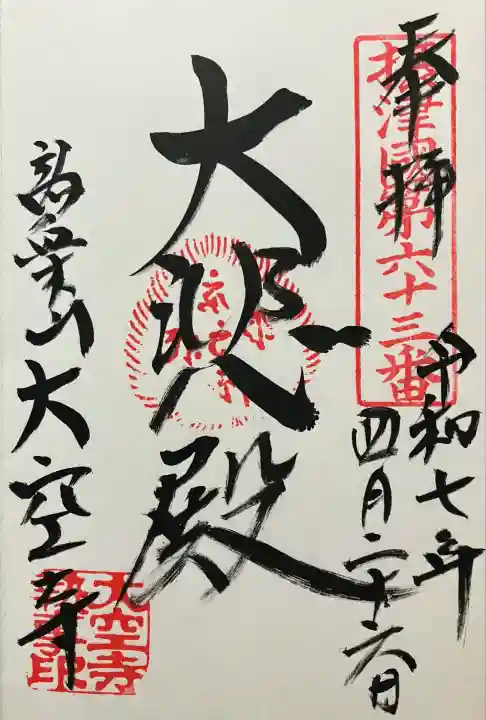 奉拝
摂津國第六十三番
令和七年
四月二十六日
大悲殿
大空寺
大空寺